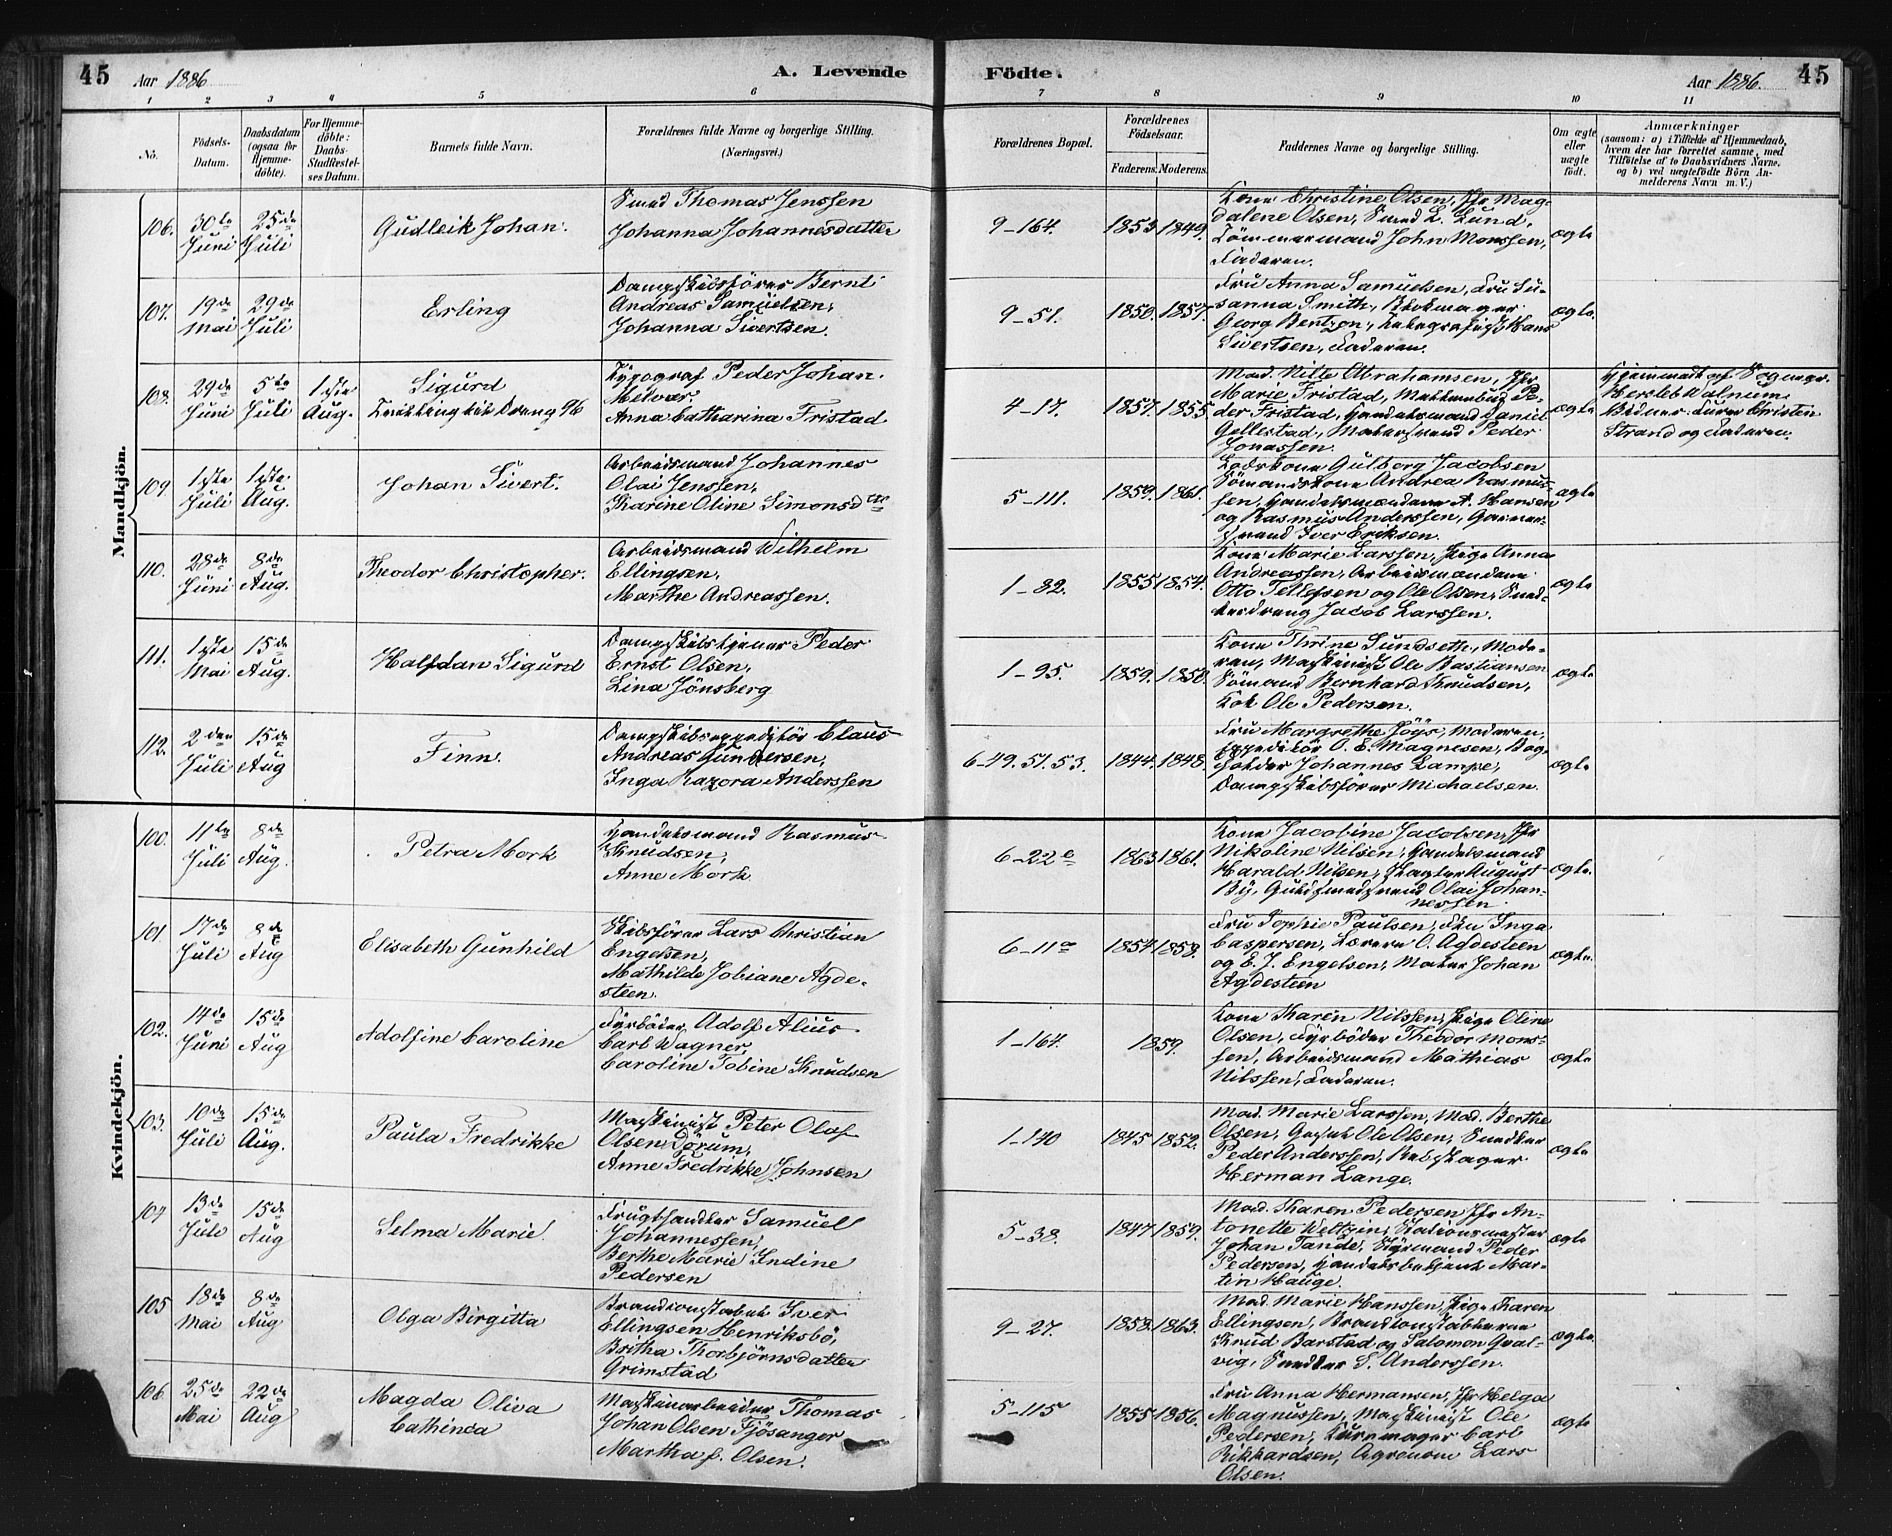 45
Aar 1886
A. Levende
1 2 3 4 5 6
No.
Födsels-
Datum.
Daabsdatum
(ogsaa for
Hjemme-
döbte).
For Hjemme-
döbte:
Daabs-
Stadfæstel-
ses Datum.
Barnets fulde Navn.
Forældrenes fulde Navne og borgerlige Stilling.
(Næringsvei.)
Födte.
Aar 1886.
45
7 8 9 10 11
Forældrenes Bopæl.
Forældrenes
Födselsaar.
Faderens. Moderens.
Faddernes Navne og borgerlige Stilling.
Om ægte
eller
uægte
födt.
Anmærkninger
(saasom: a) i Tilfælde af Hjemmedaab,
hvem der har forrettet samme, med
Tilföielse af to Daabsvidners Navne,
og b) ved uægtefödte Börn An-
melderens Navn m. V.)
Mandkjön.
106. 30te Juni 25de Juli
Gudleik Johan.
Smed Thomas Jenssen
Johanna Johannesdatter
9-164. 1853 1849.
Kone Christine Olsen, Jfr Mag-
dalene Olsen, Smed L. Lund,
Tömmermand John Monssen,
Faderen.
ægte
107. 19de Mai 29de Juli
Erling
Dampskibsförer Bernt
Andreas Samuelsen,
Johanna Sivertsen.
9-51. 1850. 1857.
Fru Anna Samuelsen, Fru Su-
sanna Smith,
Georg Bentzon, Telegrafist Hans
Sivertsen, Faderen.
ægte.
108. 29de Juni 5te Juli 1ste Aug.
Sigurd
Tvilling til Dreng 96
Typograf Peder Johan
Melvær,
Anna Catharina Fristad
4-17. 1857. 1855.
Mad. Nille Abrahamsen, Jfr
Marie Fristad, Pe-
der Fristad, Handelsmand Daniel
Gellestad, Malersvend Peder
Jonassen.
ægte
Hjemmedt af Sognepr.
Hersleb Walnum
Vidner: Lærer Christen
Strand og Faderen.
109. 1ste Juli 1ste Aug.
Johan Sivert.
Arbeidsmand Johannes
Olai Jenssen,
Karine Oline Simonsdtr
5-111. 1859. 1861.
Gulborg Jacobsen
Sömandskone Andrea Rasmus-
sen, Handelsmændene A. Hansen
og Rasmus Anderssen, Garver-
svend Iver Eriksen.
ægte
110. 28de Juni 8de Aug.
Theodor Christopher.
Arbeidsmand Wilhelm
Ellingsen,
Marthe Andreassen.
1-82. 1855 1854.
Kone Marie Larssen, Pige Anna
Andreassen, Arbeidsmændene
Otto Tellefsen og Ole Olsen, Sned-
kerdreng Jacob Larssen.
ægte
111. 1ste Mai 15de Aug.
Halfdan Sigurd
Dampskibstjener Peder
Ernst Olsen,
Lina Jönsberg
1-95. 1859. 1850.
Kone Thrine Sundseth, Mode-
ren, Maskinist Ole Bastiansen
Sömand Bernhard Knudsen,
Kok Ole Pedersen.
ægte
112. 2den Juli 15de Aug
Finn.
Dampskibsexpeditör Claus
Andreas Gundersen,
Inga Razora Anderssen
6-49.51.53. 1844. 1848.
Fru Margrethe Jöys, Moderen,
Expeditör O. E. Magnesen, Bog-
holder Johannes Lampe,
Dampskibsförer Michaelsen.
ægte
Kvindekjön.
100. 11te Juli 8de Aug.
Petra Mork
Handelsmand Rasmus
Knudsen,
Anne Mork
6-22e 1863 1861.
Kone Jacobine Jacobsen, Jfr
Nikoline Nilsen, Handelsmand
Harald Nilsen, Slagter August
By, Guldsmedsvend Olai Johan-
nessen.
ægte.
101. 17de Juli 8de Aug
Elisabeth Gunhild
Skibsförer Lars Christian
Engelsen,
Mathilde Jobiane Agde-
steen.
6-11a 1854. 1858.
Fru Sophie Paulsen, Fru Inga
Caspersen, Lærerne O. Agdesteen
og E. J. Engelsen, Maler Johan
Agdesteen
ægte.
102. 14de Juni 15de Aug
Adolfine Caroline
Fyrböder Adolf Alius
Carl Wagner,
Caroline Tobine Knudsen
1-164. 1859.
Kone Karen Nilssen, Pige Oline
Olsen, Fyrböder Theodor Mons-
sen, Arbeidsmand Mathias
Nilssen, Faderen.
ægte
103. 10de Juli 15de Aug.
Paula Fredrikke
Maskinist Peter Olaf
Olsen Dörum,
Anne Fredrikke Johnsen
1-140 1845 1852.
Mad. Marie Larssen, Mad. Berthe
Olsen, Ole Olsen, Snedker
Peder Anderssen, Rebslager
Herman Lange.
ægte
104 13de Juli 15de Aug
Selma Marie.
Frugthandler Samuel
Johannessen,
Berthe Marie Indine
Pedersen
5-38. 1847 1859.
Mad. Karen Pedersen Jfr An-
tonette Weltzin, Stationsmester
Johan Tande, Styrmand Peder
Pedersen, Handelsbetjent Mar-
tin Hauge.
ægte
105 18de Mai 8de Aug
Olga Birgitta
Brandkonstabel Iver
Ellingsen Henriksbö,
Britha Thorbjörnsdatter
Grimstad
9-27. 1858. 1863.
Mad. Marie Hanssen, Pige Karen
Ellingsen, Brandkonstablerne
Knud Barstad og Salomon Qval-
vig, Snedker S. Anderssen.
ægte.
106. 25de Mai 22de Aug
Magda Oliva
Cathinca
Maskinarbeider Thomas
Johan Olsen Fjösanger
Martha f. Olsen.
5-115 1855 1856.
Fru Anna Hermansen, Jfr Helga
Magnussen, Maskinist Ole
Pedersen, Kurvmager Carl
Rikhardsen, Agronom Lars
Olsen.
ægte